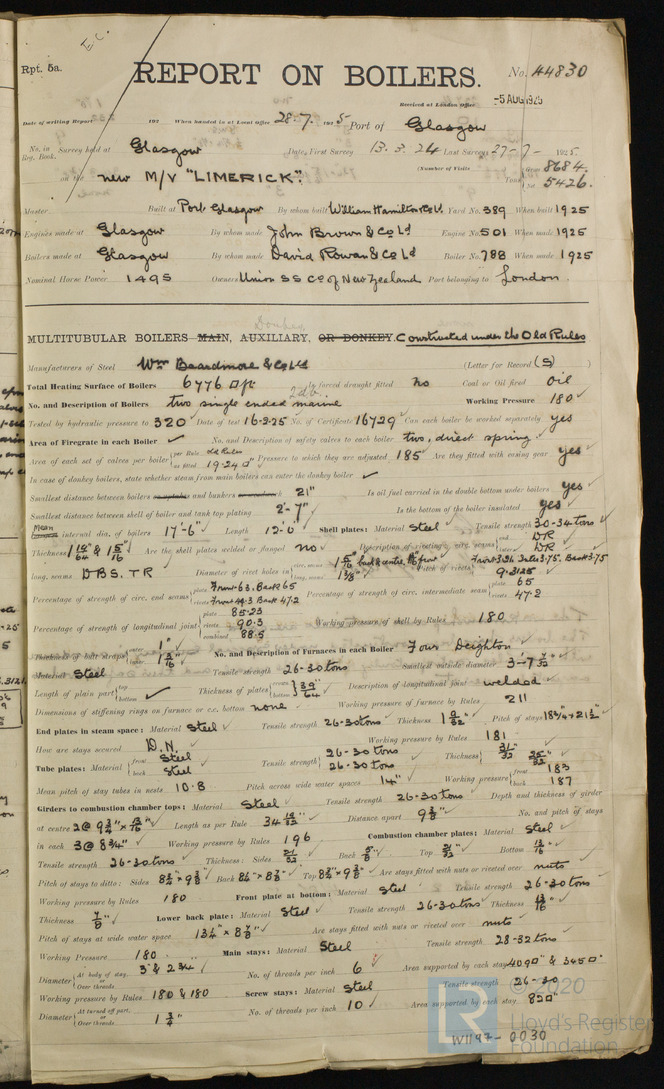 E.C.
Rpt. 5a.
REPORT ON BOILERS.
No. 44830
Received at London Office
-5 AUG 1925
Date of writing Report 192 When handed in at Local Office 28.7. 1925 Port of Glasgow
No. in Reg. Book. Survey held at Glasgow Date, First Survey 13.3.24 Last Survey 27-7- 1925
(Number of Visits
on the new M/V "LIMERICK" Tons Gross 8684. Net 5426.
Master Built at Port Glasgow By whom built William Hamilton & Co Ld. Yard No. 389 When built 1925
Engines made at Glasgow By whom made John Brown & Co Ld Engine No. 501 When made 1925
Boilers made at Glasgow By whom made David Rowan & Co Ld Boiler No. 788 When made 1925
Nominal Horse Power 1495 Owners Union SS Co of New Zealand Port belonging to London.
Donkey
MULTITUBULAR BOILERS MAIN, AUXILIARY, OR DONKEY. Constructed under the Old Rules
Manufacturers of Steel Wm Beardmore & Co Ld (Letter for Record (S) )
Total Heating Surface of Boilers 6776 □ft Is forced draught fitted no Coal or Oil fired oil
2db.
No. and Description of Boilers two single ended marine Working Pressure 180
Tested by hydraulic pressure to 320 Date of test 16-2-25 No. of Certificate 16729 Can each boiler be worked separately yes
Area of Firegrate in each Boiler ✓ No. and Description of safety valves to each boiler two, direct spring
Area of each set of valves per boiler per Rule old Rules as fitted 19.24 □" Pressure to which they are adjusted 185 Are they fitted with easing gear yes
In case of donkey boilers, state whether steam from main boilers can enter the donkey boiler ✓
Smallest distance between boilers and bunkers 21" Is oil fuel carried in the double bottom under boilers yes
Smallest distance between shell of boiler and tank top plating 2'-7" Is the bottom of the boiler insulated yes
Mean internal dia. of boilers 17'-6" Length 12'-0" Shell plates: Material Steel Tensile strength 30-34 tons
Are the shell plates welded or flanged no Description of riveting: circ. seams end DR inter DR
long. seams DBS. TR Diameter of rivet holes in circ. seams long. seams 1 3/8" Pitch of rivets 9.3125
Percentage of strength of circ. end seams plate Front 63. Back 65 rivets Back 47.2 Percentage of strength of circ. intermediate seam plate 65 rivets 47.2
Percentage of strength of longitudinal joint plate 85.23 rivets 90.3 combined 88.5 Working pressure of shell by Rules 180
Thickness of butt straps outer 1" inner 1 3/16" No. and Description of Furnaces in each Boiler Four Deighton
Material Steel Tensile strength 26-30 tons Smallest outside diameter 3'-7 7/32"
Length of plain part top bottom ✓ Thickness of plates crown bottom 39/64" Description of longitudinal joint welded
Dimensions of stiffening rings on furnace or c.c. bottom none Working pressure of furnace by Rules 211
End plates in steam space: Material Steel Tensile strength 26-30 tons Thickness 1 9/32" Pitch of stays 18 3/4" x 21 1/2"
How are stays secured D.N. Working pressure by Rules 181
Tube plates: Material front Steel back Steel Tensile strength 26-30 tons 26-30 tons Thickness 31/32" 25/32"
Mean pitch of stay tubes in nests 10.8 Pitch across wide water spaces 14" Working pressure front 183 back 187
Girders to combustion chamber tops: Material Steel Tensile strength 26-30 tons Depth and thickness of girder
at centre 2@ 9 3/4" x 13/16" Length as per Rule Distance apart 9 3/8" No. and pitch of stays
in each 3@ 8 3/4" Working pressure by Rules 196 Combustion chamber plates: Material Steel
Tensile strength 26-30 tons Thickness: Sides 21/32" Back 5/8" Top 21/32" Bottom 13/16"
Pitch of stays to ditto: Sides Back Top Are stays fitted with nuts or riveted over nuts
Working pressure by Rules 180 Front plate at bottom: Material Steel Tensile strength 26-30 tons
Thickness 7/8" Lower back plate: Material Steel Tensile strength 26-30 tons Thickness 13/16"
Pitch of stays at wide water space 13 1/4" x 8 7/8" Are stays fitted with nuts or riveted over nuts
Working Pressure 180 Main stays: Material Steel Tensile strength 28-32 tons
Diameter At body of stay, or Over threads 3" & 2 3/4" No. of threads per inch 6 Area supported by each stay 409□" & 345□"
Working pressure by Rules 180 & 180 Screw stays: Material Steel Tensile strength 26-30
Diameter At turned off part, or Over threads 1 3/4" No. of threads per inch 10 Area supported by each stay 82□"
© 2020
Lloyd's Register
Foundation
LR
W1197-0030